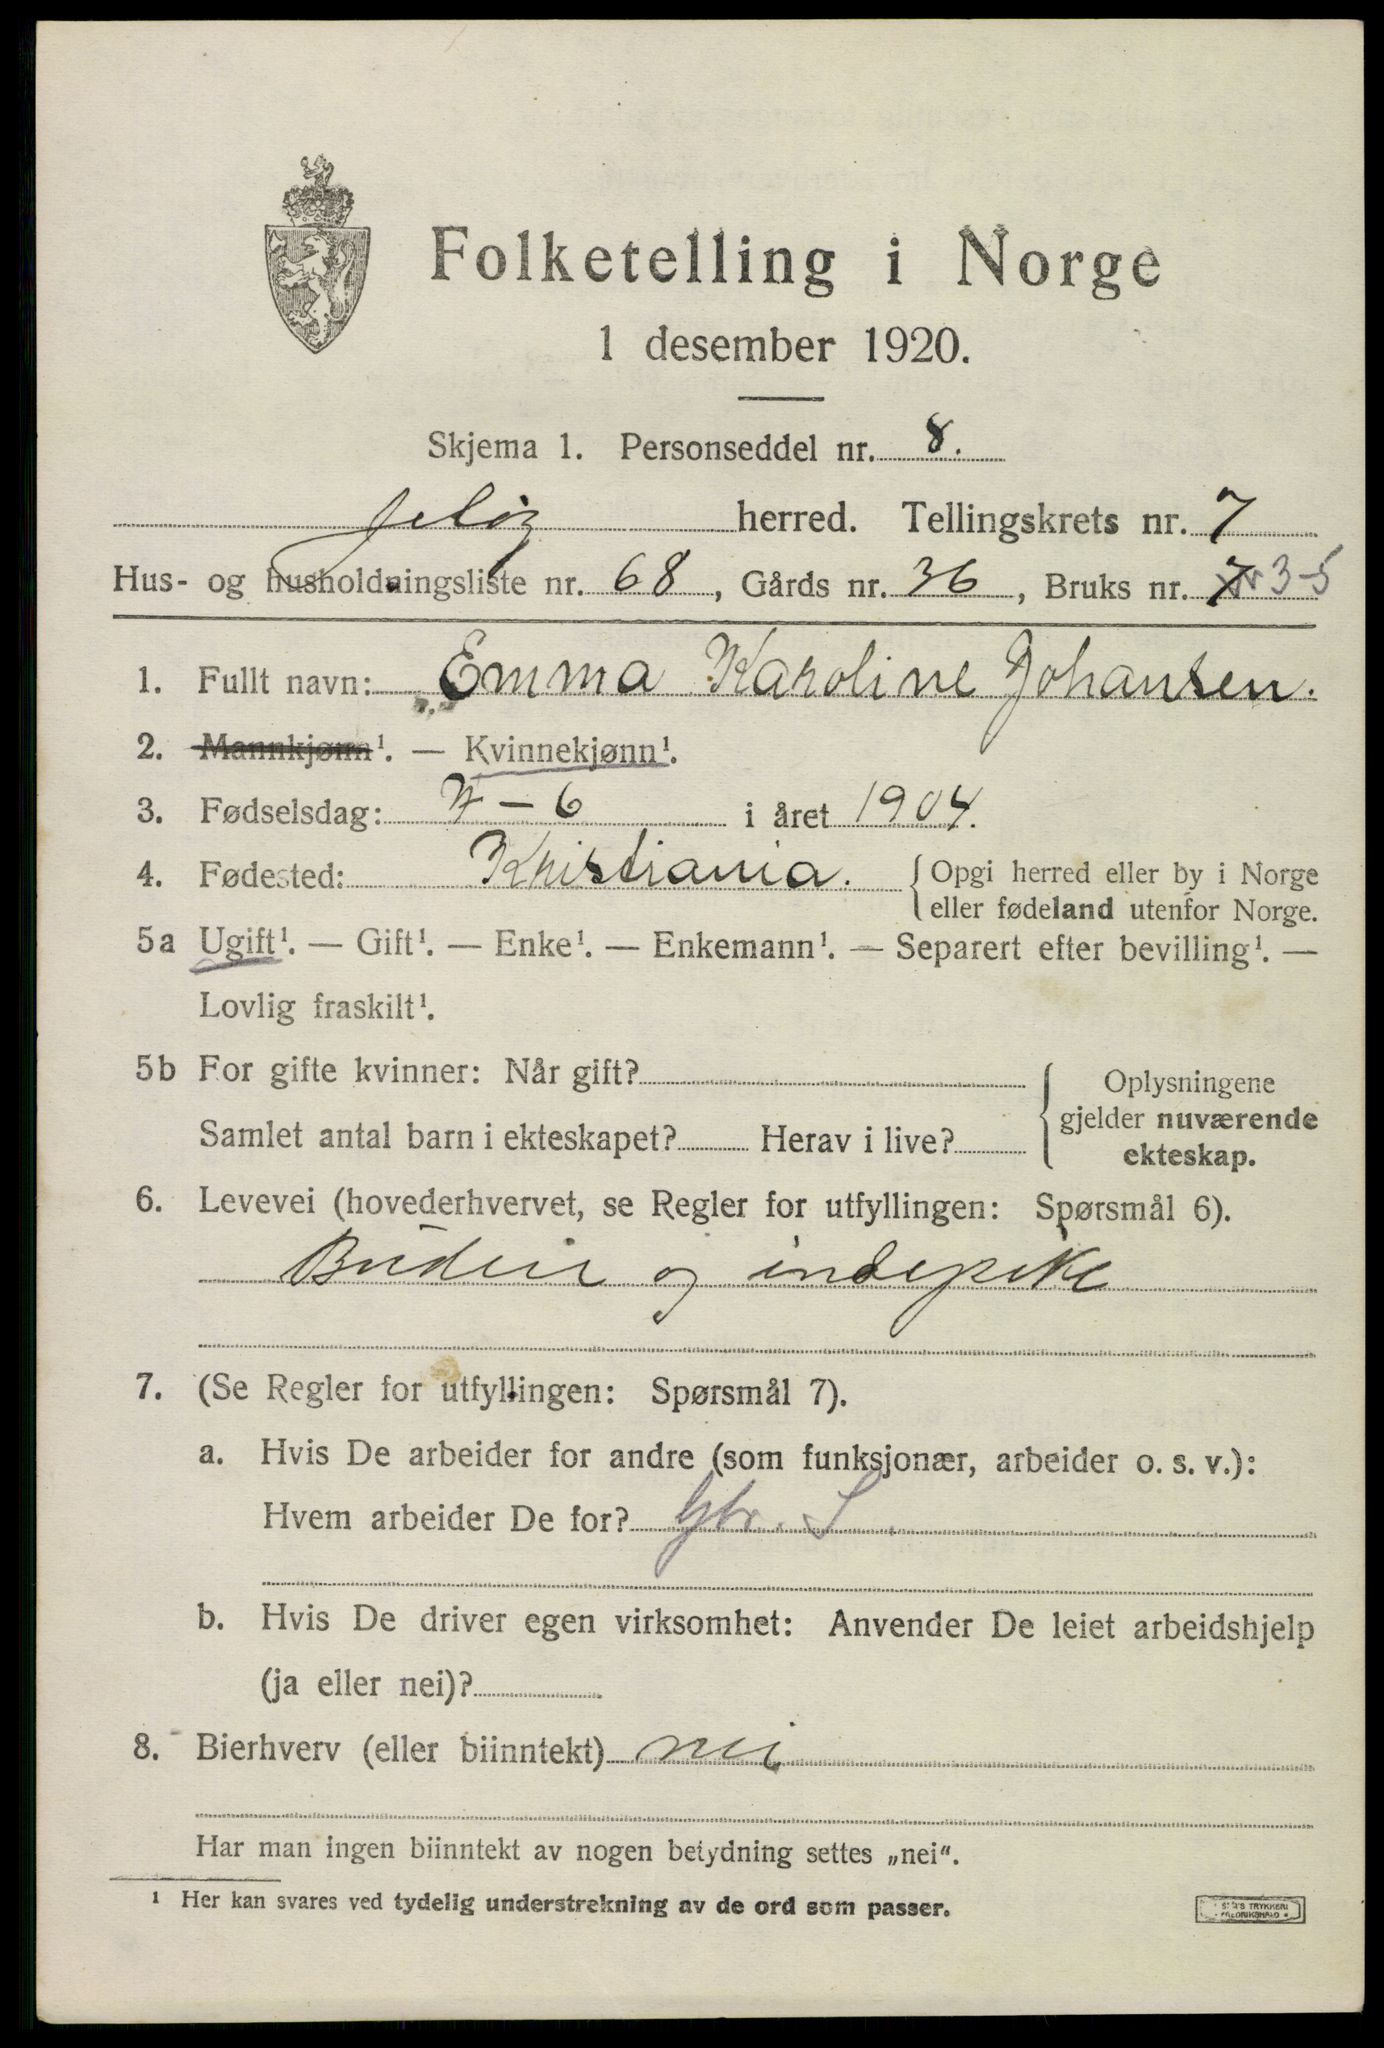 Folketelling i Norge
1 desember 1920.
Skjema 1. Personseddel nr. 8.
Jeløy herred. Tellingskrets nr. 7
Hus- og husholdningsliste nr. 68, Gårds nr. 36, Bruks nr. 7 3-5
1. Fullt navn: Emma Karoline Johansen.
2. Mannkjønn¹. — Kvinnekjønn¹.
3. Fødselsdag: 7-6 i året 1904.
4. Fødested: Khistiania. {Opgi herred eller by i Norge
eller fødeland utenfor Norge.
5a Ugift¹. — Gift¹. — Enke¹. — Enkemann¹. — Separert efter bevilling¹. —
Lovlig fraskilt¹.
5b For gifte kvinner: Når gift? Oplysningene
gjelder nuværende
Samlet antal barn i ekteskapet? Herav i live?
ekteskap.
6. Levevei (hovederhvervet, se Regler for utfyllingen: Spørsmål 6).
Budeie og indepike
7. (Se Regler for utfyllingen: Spørsmål 7).
a. Hvis De arbeider for andre (som funksjonær, arbeider o. s. v.):
Hvem arbeider De for? Gbr. S
b. Hvis De driver egen virksomhet: Anvender De leiet arbeidshjelp
(ja eller nei)?
8. Bierhverv (eller biinntekt) nei
Har man ingen biinntekt av nogen betydning settes „nei“.
¹ Her kan svares ved tydelig understrekning av de ord som passer.
TRYKKERI
FREDRIKSHALD